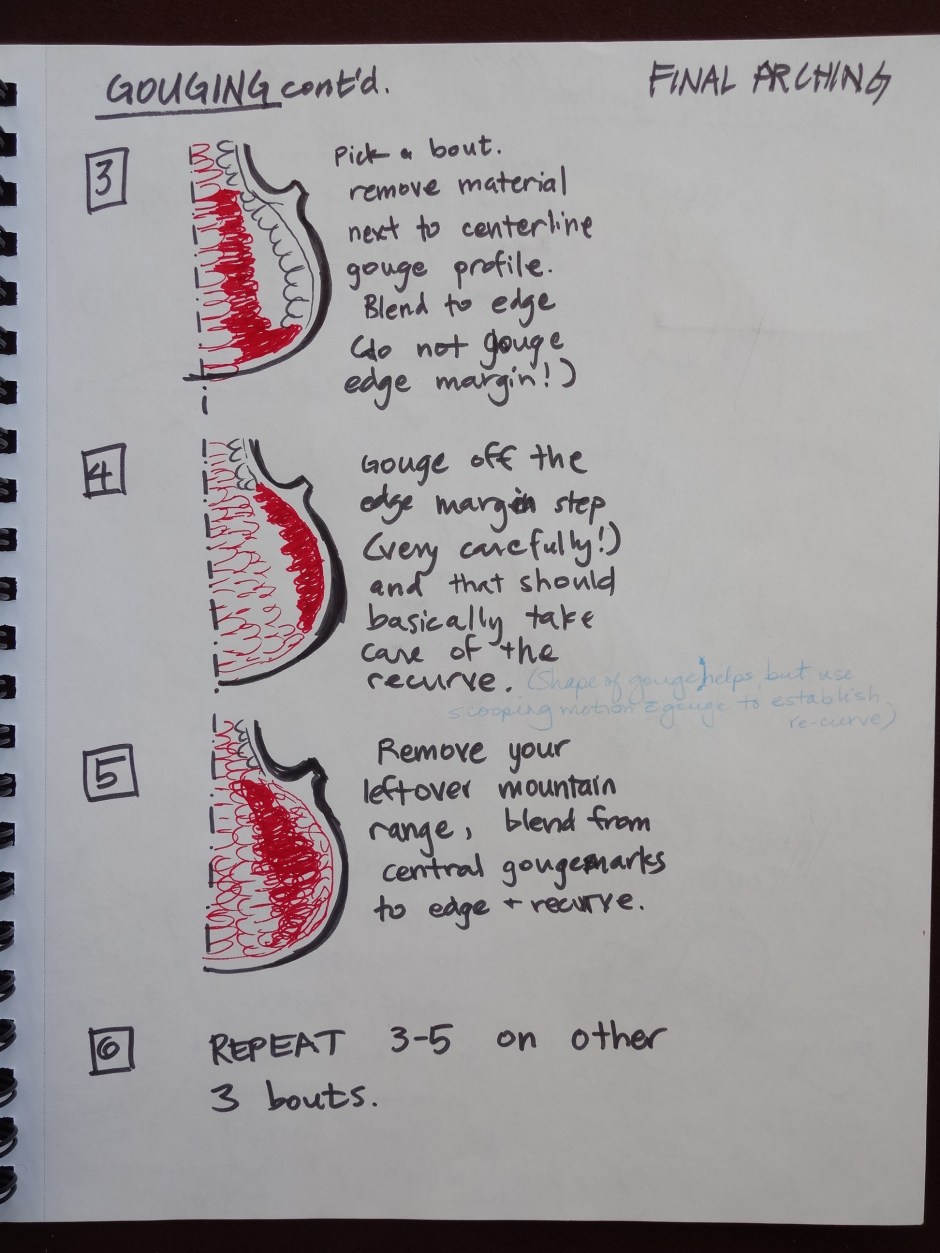 GOUGING cont'd.
FINAL ARCHING
3
Pick a bout.
remove material
next to centerline
gouge profile.
Blend to edge
(do not gouge
edge margin!)
4
Gouge off the
edge margin step
(very carefully!)
and that should
basically take
care of the
recurve. (Shape of gouge helps, but use
scooping motion c̄ gouge to establish
re-curve)
5
Remove your
leftover mountain
range, blend from
central gougemarks
to edge + recurve.
6
REPEAT 3-5 on other
3 bouts.